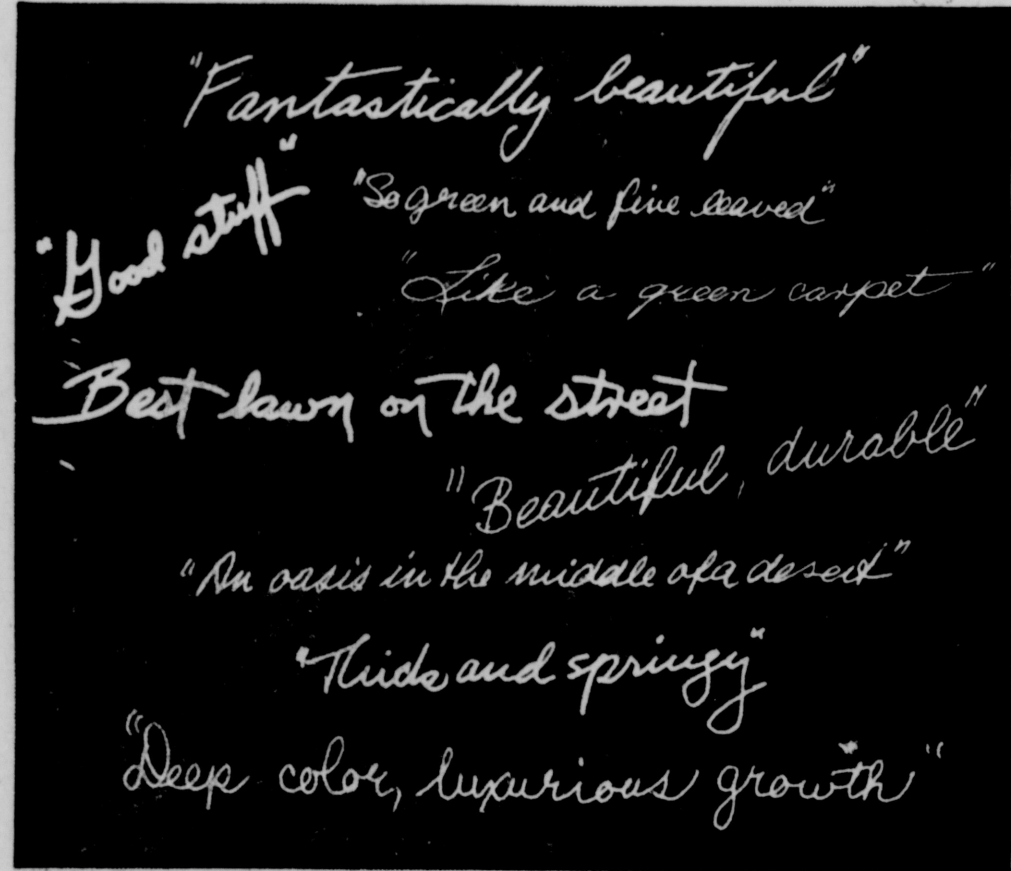 "Fantastically beautiful"
"Good stuff"
"So green and fine leaved"
"Like a green carpet"
Best lawn on the street
"Beautiful, durable"
"An oasis in the middle of a desert"
"Thick and springy"
"Deep color, luxurious growth"